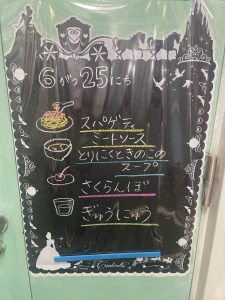 6がつ25にち
スパゲティ
ミートソース
とりにくときのこの
スープ
さくらんぼ
ぎゅうにゅう
Cinderella